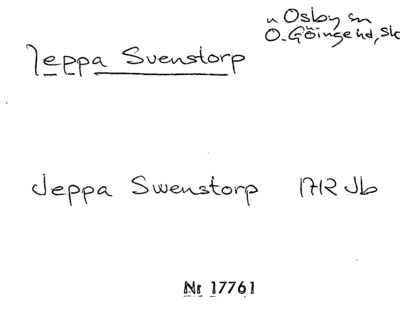 n Osby sn
O. Göinge hd, Sk
Jeppa Svenstorp
Jeppa Swenstorp 1712 Jb
Nr 17761